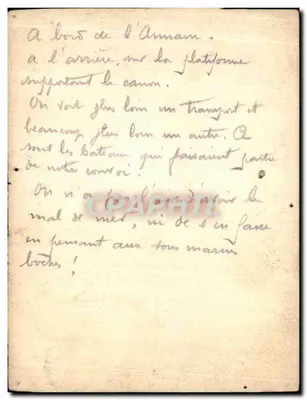 A bord de l'Annam.
a l'arrière, sur la plateforme
supportant le canon.
On voit plus loin un transport et
beaucoup plus loin un autre. Ce
sont les bateaux qui faisaient partie
de notre convoi.
On n'a pas l'air d'avoir le
mal de mer, ni de s'en faire
en pensant aux sous marins
boches!
CPAPHIL